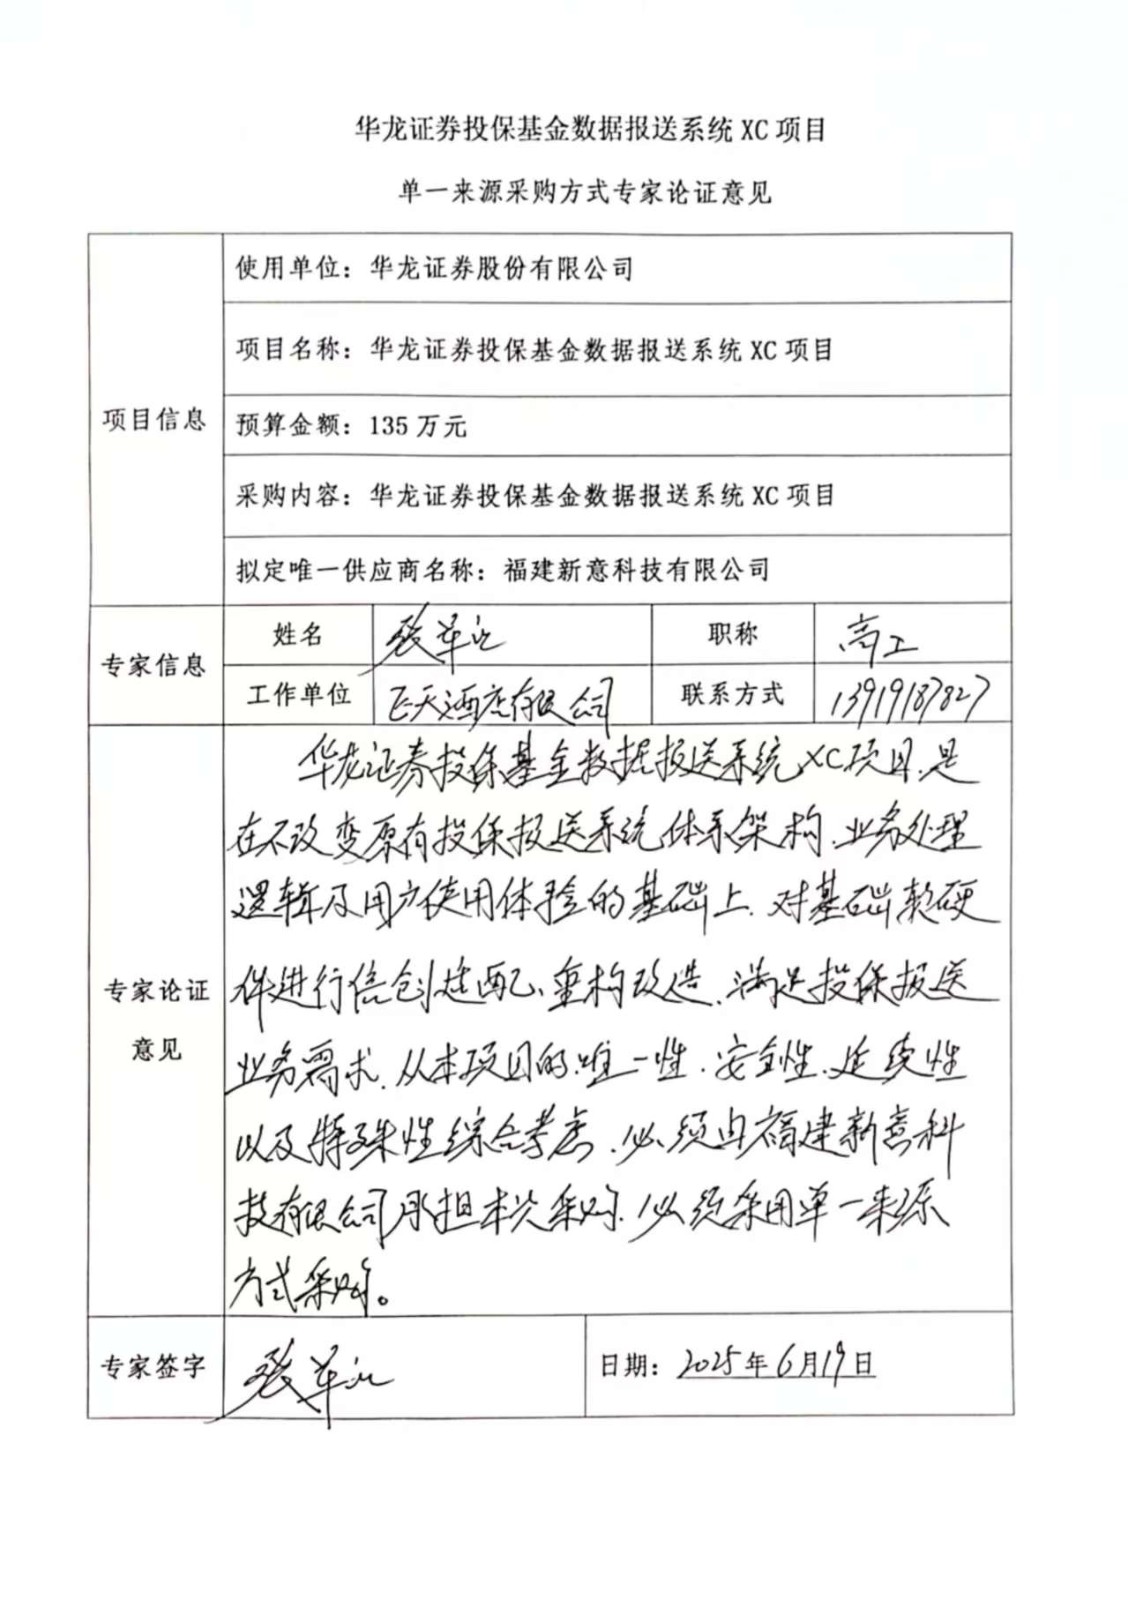 华龙证券投保基金数据报送系统 XC 项目
单一来源采购方式专家论证意见
项目信息
使用单位：华龙证券股份有限公司
项目名称：华龙证券投保基金数据报送系统 XC 项目
预算金额：135 万元
采购内容：华龙证券投保基金数据报送系统 XC 项目
拟定唯一供应商名称：福建新意科技有限公司
专家信息
姓名 张军 职称 高工
工作单位 飞天酒店有限公司 联系方式
专家论证
意见
华龙证券投保基金数据报送系统XC项目,是
在不改变原有投保报送系统体系架构、业务处理
逻辑及用户使用体验的基础上,对基础软硬
件进行信创适配、重构改造,满足投保报送
业务需求,从本项目的唯一性、安全性、延续性
以及特殊性综合考虑,必须由福建新意科
技有限公司承担本次采购,必须采用单一来源
方式采购。
专家签字 张军
日期：2025年6月19日